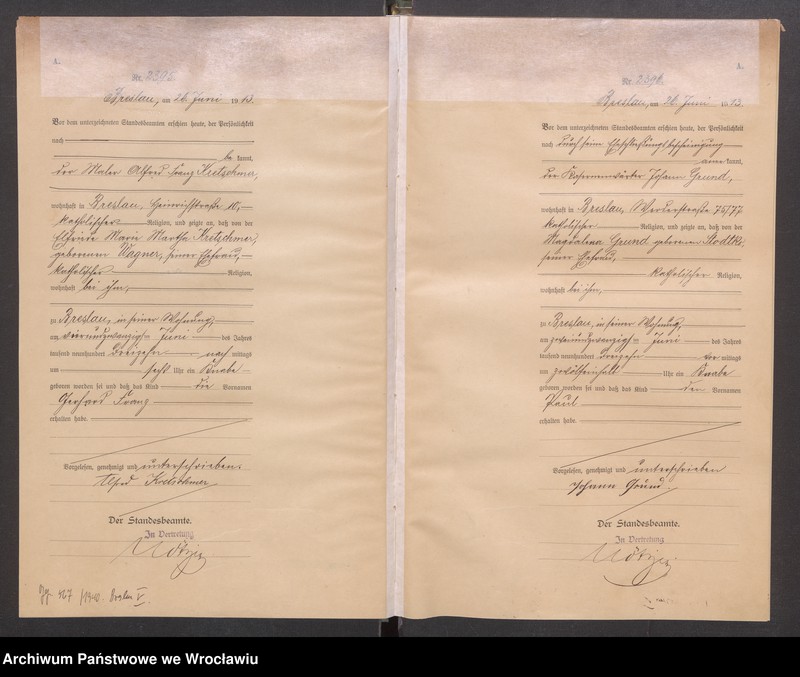 A.
Nr. 2395
Breslau, am 26. Juni 1913.
Vor dem unterzeichneten Standesbeamten erschien heute, der Persönlichkeit
nach
be kannt,
der Maler Alfred Franz Kretschmer,
wohnhaft in Breslau, Heinrichstraße 10,
katholischer Religion, und zeigte an, daß von der
Elfriede Marie Martha Kretschmer,
geborenen Wagner, seiner Ehefrau,
katholischer Religion,
wohnhaft bei ihm,
zu Breslau, in seiner Wohnung,
am vierundzwanzigsten Juni des Jahres
tausend neunhundert dreizehn nach mittags
um sechs Uhr ein Knabe
geboren worden sei und daß das Kind die Vornamen
Gerhard Franz
erhalten habe.
Vorgelesen, genehmigt und unterschrieben.
Alfred Kretschmer
Der Standesbeamte.
In Vertretung
A.
Nr.
Breslau, am 26. Juni 1913.
Vor dem unterzeichneten Standesbeamten erschien heute, der Persönlichkeit
nach durch seine
aner kannt,
der Kasernenwärter Johann Grund,
wohnhaft in Breslau, Werderstraße 75/77
katholischer Religion, und zeigte an, daß von der
Magdalena Grund geborenen
seiner Ehefrau,
katholischer Religion,
wohnhaft bei ihm,
zu Breslau, in seiner Wohnung,
am zweiundzwanzigsten Juni des Jahres
tausend neunhundert dreizehn vor mittags
um zwölfeinhalb Uhr ein Knabe
geboren worden sei und daß das Kind den Vornamen
Paul
erhalten habe.
Vorgelesen, genehmigt und unterschrieben
Johann Grund
Der Standesbeamte.
In Vertretung
Archiwum Państwowe we Wrocławiu